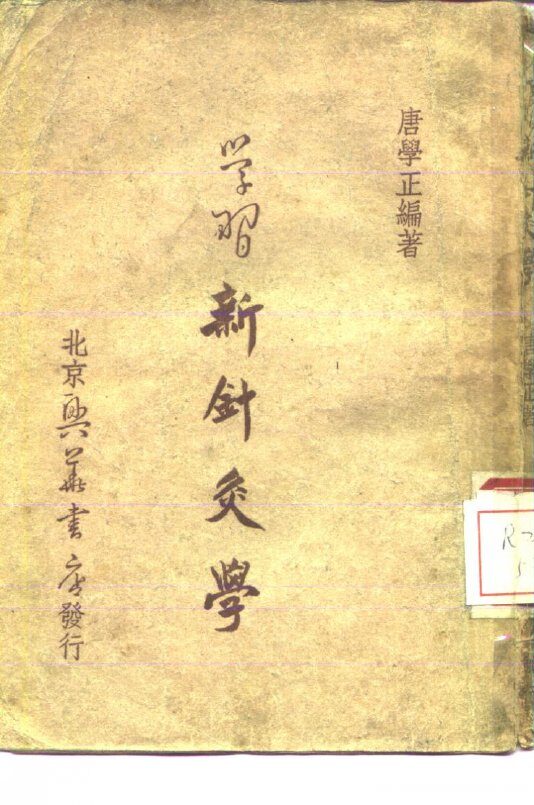 唐學正編著
学習新針灸學
北京興華書店發行
R